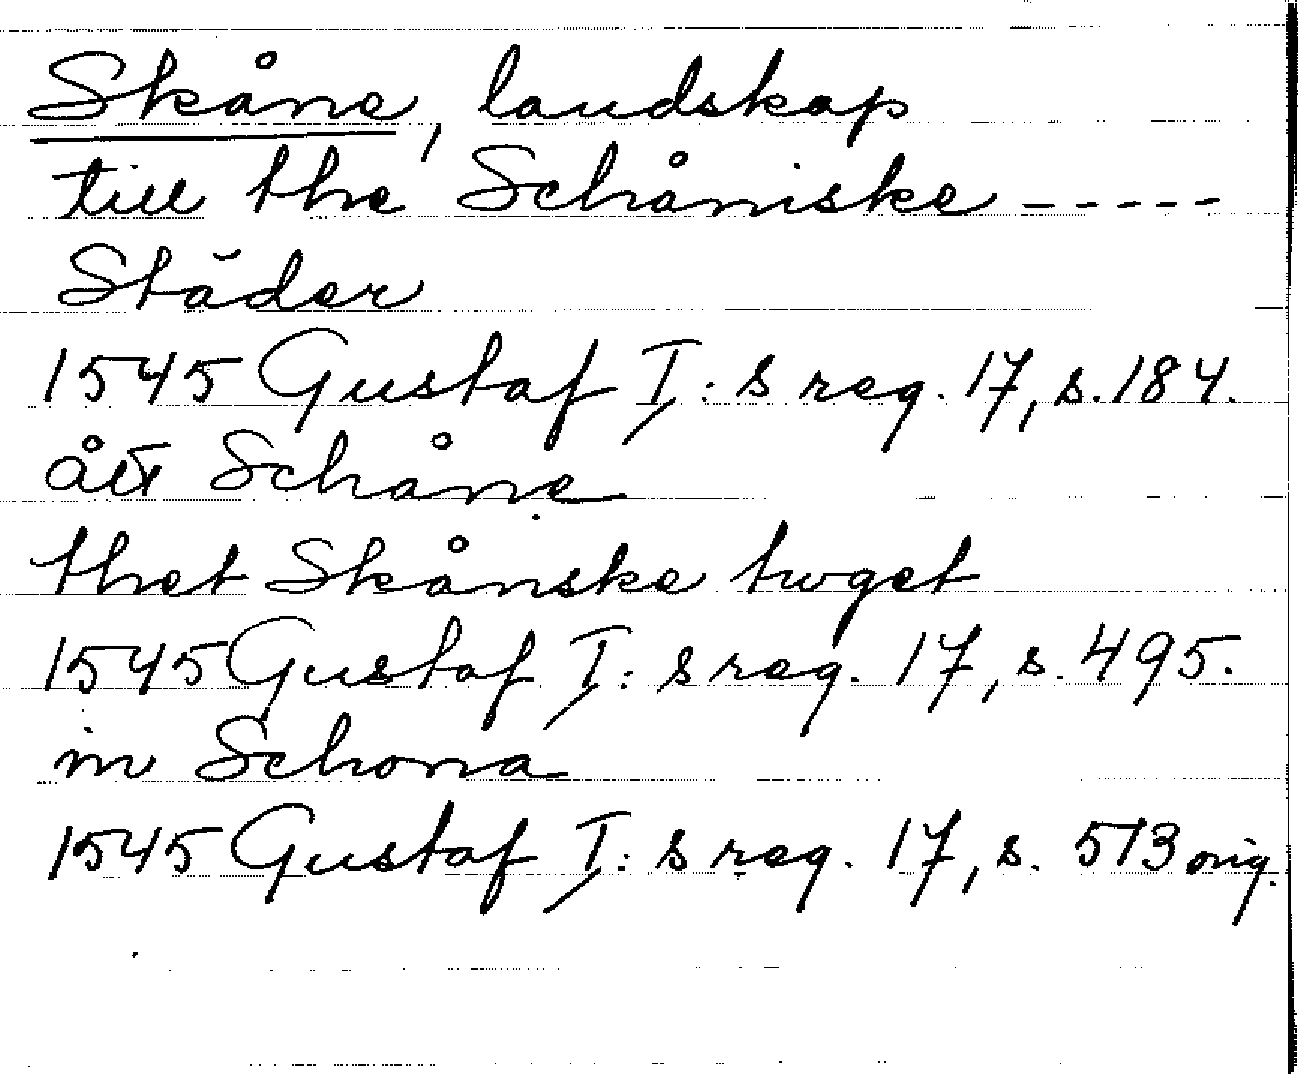 Skåne, landskap
till the Schåniske -----
Städer
1545 Gustaf I:s reg. 17, s. 184.
ått Schåne
thet Skånske twget
1545 Gustaf I:s reg. 17, s. 495.
in Schona
1545 Gustaf I:s reg. 17, s. 513 orig.